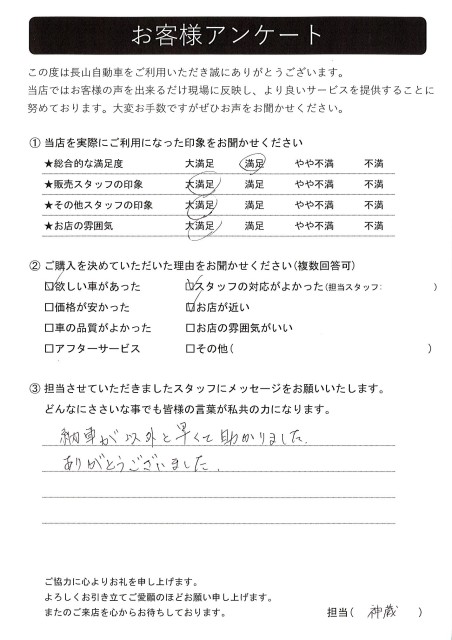 お客様アンケート
この度は長山自動車をご利用いただき誠にありがとうございます。
当店ではお客様の声を出来るだけ現場に反映し、より良いサービスを提供することに
努めております。大変お手数ですがぜひお声をお聞かせください。
① 当店を実際にご利用になった印象をお聞かせください
★総合的な満足度 大満足 満足 やや不満 不満
★販売スタッフの印象 大満足 満足 やや不満 不満
★その他スタッフの印象 大満足 満足 やや不満 不満
★お店の雰囲気 大満足 満足 やや不満 不満
② ご購入を決めていただいた理由をお聞かせください(複数回答可)
☑欲しい車があった ☑スタッフの対応がよかった(担当スタッフ: )
□価格が安かった ☑お店が近い
□車の品質がよかった □お店の雰囲気がいい
□アフターサービス □その他( )
③ 担当させていただきましたスタッフにメッセージをお願いいたします。
どんなにささいな事でも皆様の言葉が私共の力になります。
納車が以外と早くて助かりました.
ありがとうございました.
ご協力に心よりお礼を申し上げます。
よろしくお引き立てご愛顧のほどお願い申し上げます。
またのご来店を心からお待ちしております。 担当( 神蔵 )